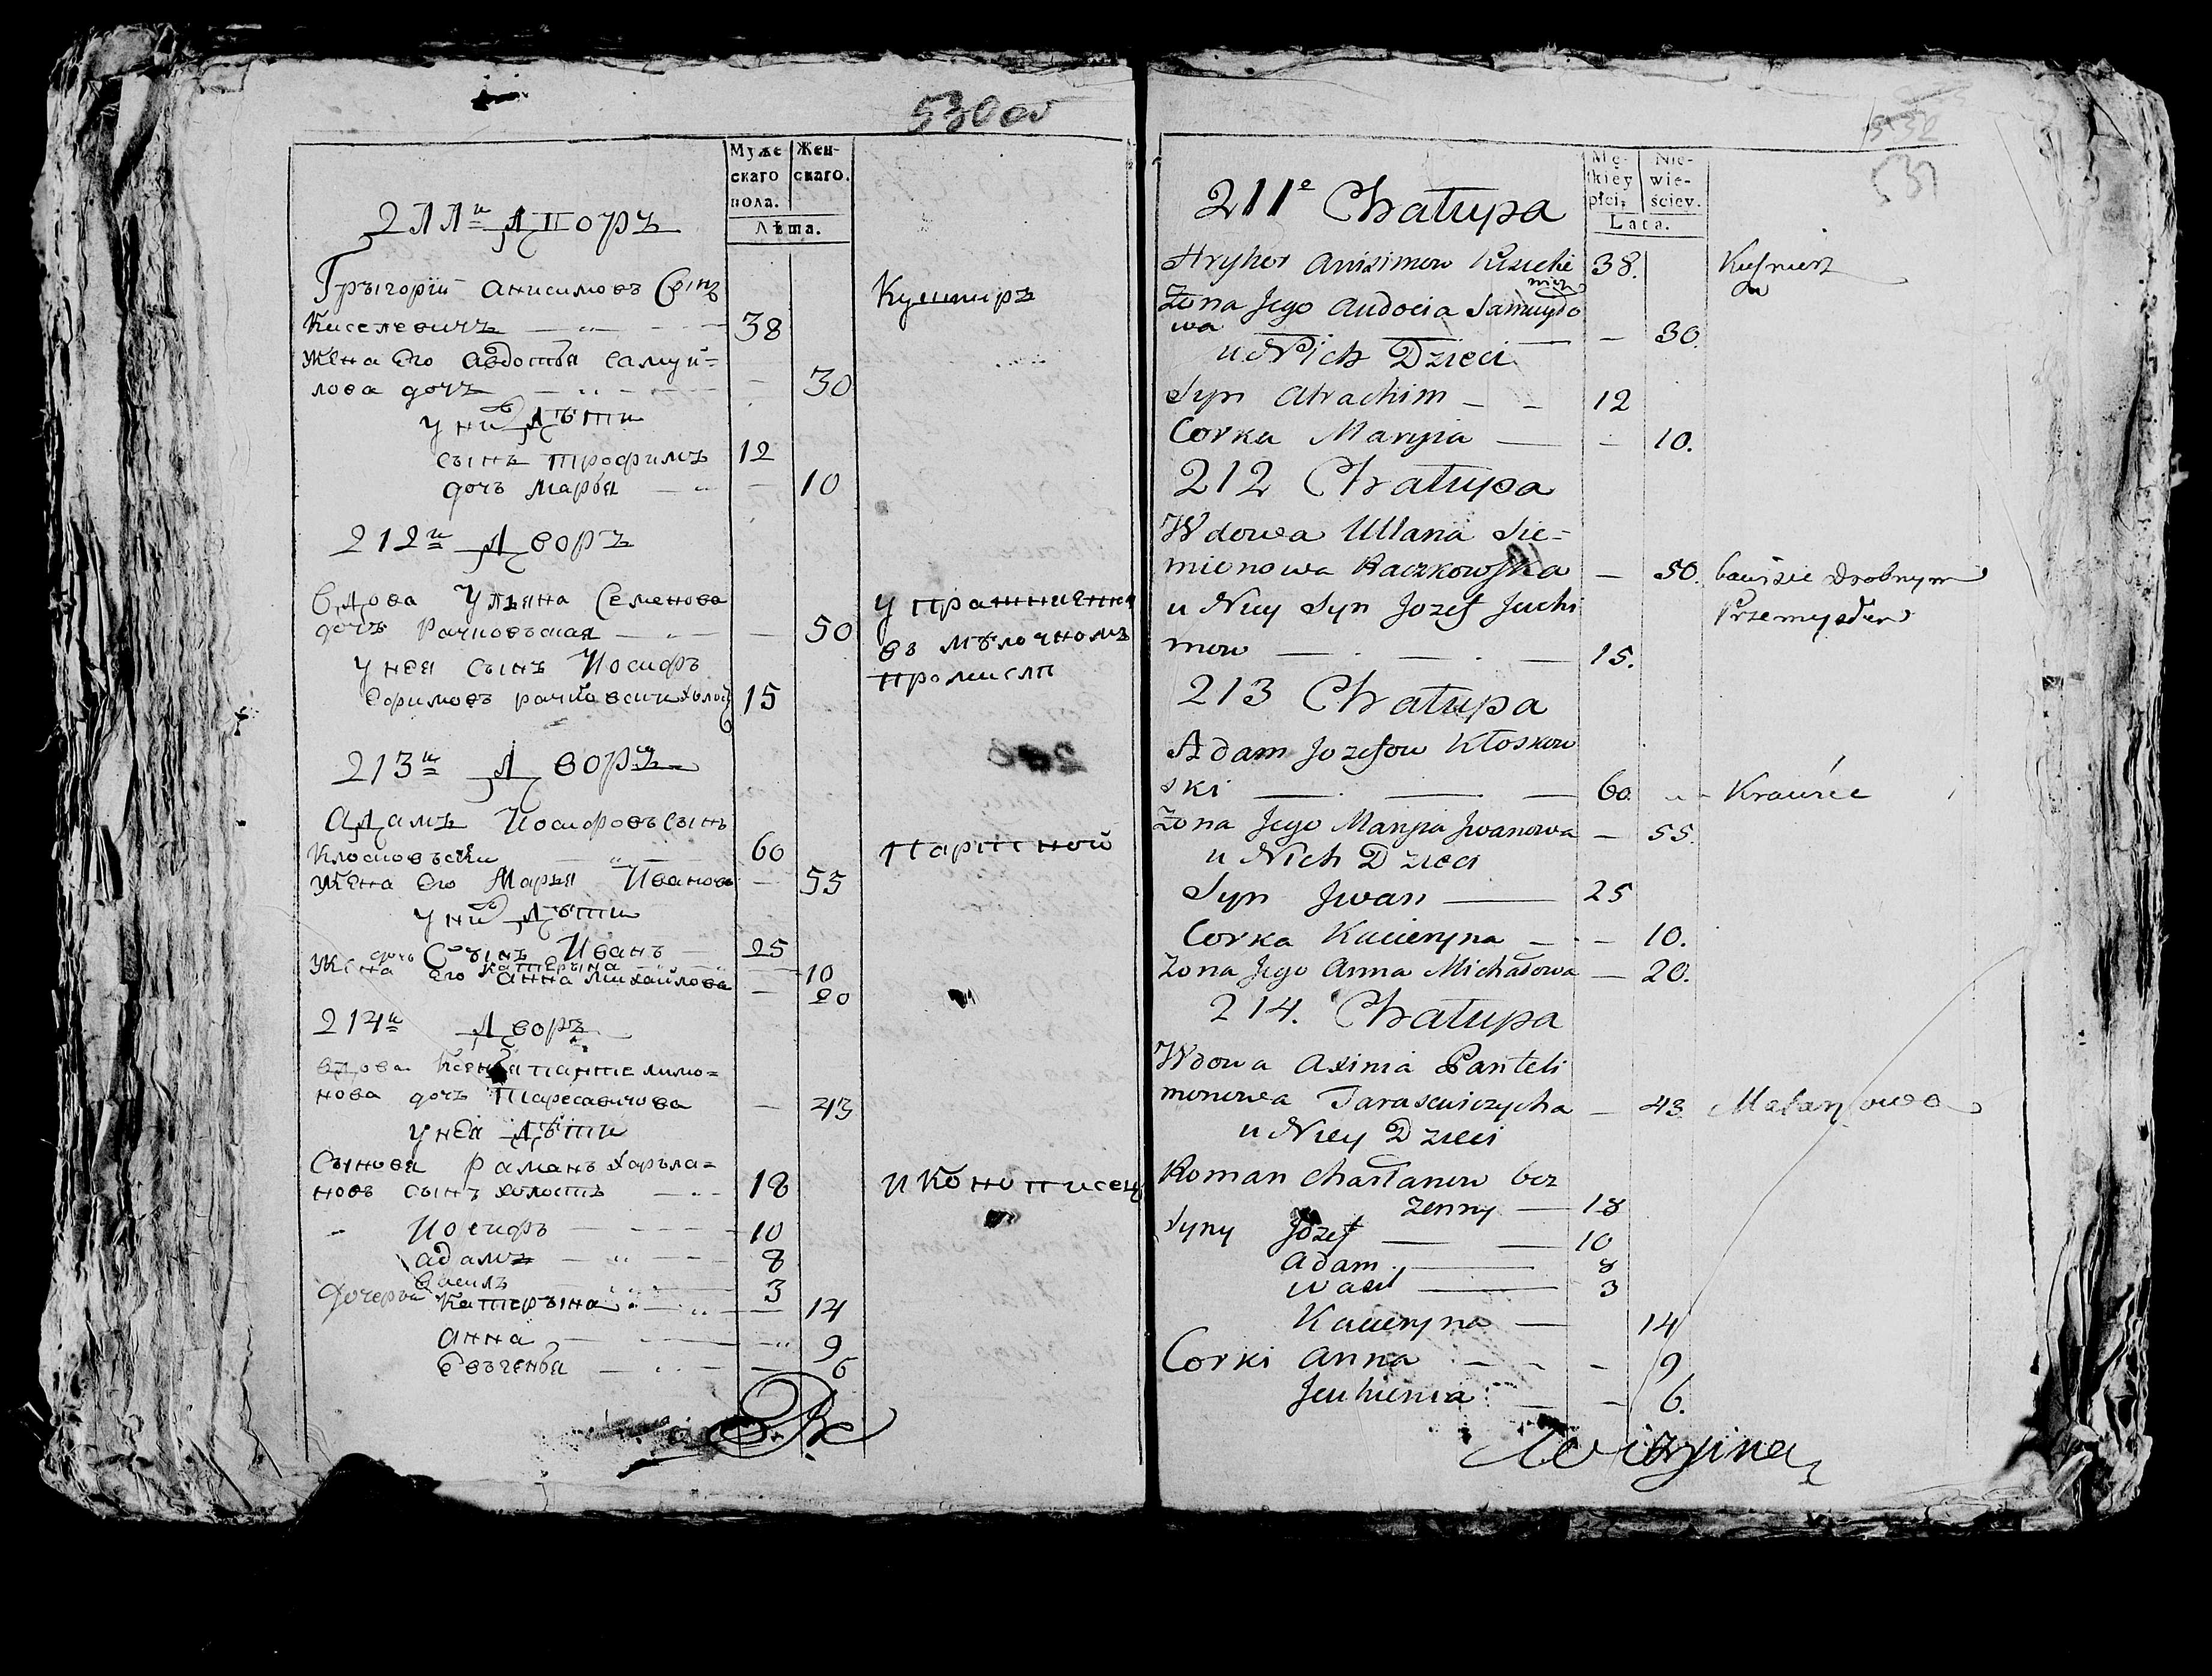 530 об
Муже
скаго
пола.
Жен-
скаго.
Лѣта.
211й Дворъ
Грыгорій Анисимовъ Сынъ
Киселевичъ 38
Кушниръ
Жена Его Авдотья Самуй=
лова дочъ 30
у них Дѣти
сынъ Трофимъ 12
дочъ Марья 10
212й Дворъ
Вдова Ульяна Семенова
дочъ Рачковъская 50
упражненна
въ мѣлочномъ
промислѣ
у нея сынъ Иосифъ
Ефимовъ рачковски холост 15
213й Дворъ
Адамъ Иосифовъ Сынъ
Клосковъски 60
Партной
Жена Его Марья Иванова 55
у них Дѣти
Сынъ Иванъ 25
дочъ Катерына 10
Жена Его Анна Михайлова 20
214й Дворъ
вдова Ксенья Пантелимо=
нова дочъ Тарасавичова 43
у нея Дѣти
Сыновя Раманъ Харъла=
новъ сынъ холостъ 18
Иконописец
Иосифъ 10
адамъ 8
Василъ 3
Дочеръи Катерына 14
анна 9
Евъгенья 6
Mę-
skiey
płci,
Nie-
wie-
ściey.
Lata.
211e Chałupa
Hryhor Anisimow Kisiele
wicz 38. Kuśnierz
Żona Jego Audocia Samuyło
wa 30.
u Nich Dzieci
Syn Atrachim 12
Corka Maryia 10.
212 Chałupa
Wdowa Ullana Sie=
mionowa Raczkowska 50. bawi sie drobnym
Przemysłem
u Niey Syn Jozef Juchi
mow 15.
213 Chałupa
Adam Jozefow Kłoskow
ski 60. Krawiec
Żona Jego Maryia Jwanowa 55.
u Nich Dzieci
Syn Jwan 25
Corka Kacieryna 10.
Żona Jego Anna Michałowa 20.
214. Chałupa
Wdowa Axinia Panteli
monowa Tarasewiczycha 43
u Niey Dzieci
Roman Charłanow bez
żenny 18
Syny Jozef 10
Adam 8
Wasil 3
Kacieryna 14
Corki Anna 9
Jeuhienia 6.